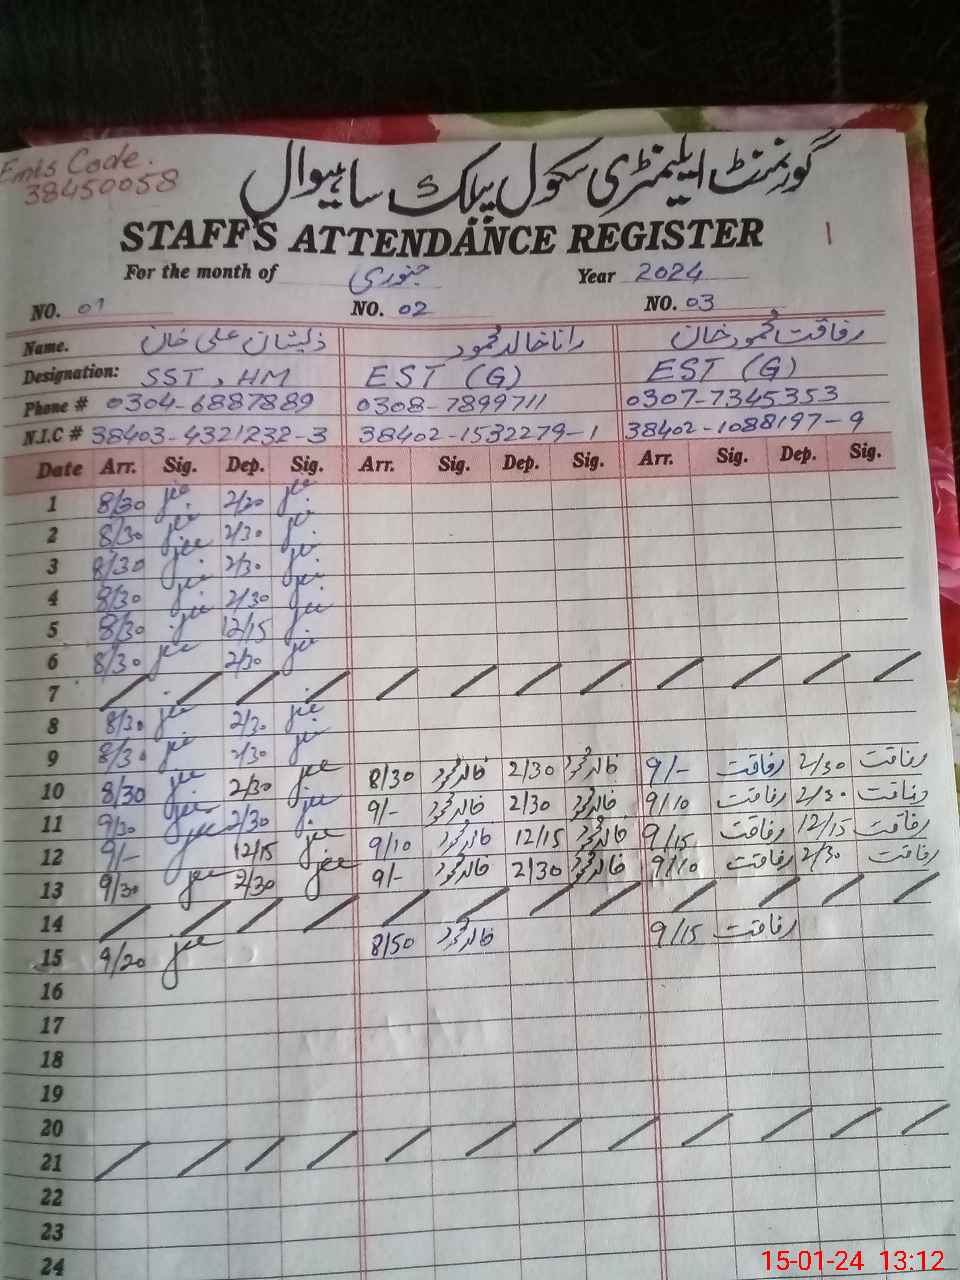 Emis Code.
38450058
گورنمنٹ ایلیمنٹری سکول پبلک ساہیوال
STAFF'S ATTENDANCE REGISTER 1
For the month of جنوری Year 2024
NO. 01 NO. 02 NO. 03
Name. ذیشان علی خان رانا خالد محمود رفاقت محمود خان
Designation: SST, HM EST (G) EST (G)
Phone # 0304-6887889 0308-7899711 0307-7345353
N.I.C # 38403-4321232-3 38402-1532279-1 38402-1088197-9
Date Arr. Sig. Dep. Sig. Arr. Sig. Dep. Sig. Arr. Sig. Dep. Sig.
1 8/30 2/30
2 8/30 2/30
3 8/30 2/30
4 8/30 2/30
5 8/30 12/15
6 8/30 2/30
7
8 8/30 2/30
9 8/30 2/30
10 8/30 2/30 8/30 خالد محمود 2/30 خالد محمود 9/- رفاقت 2/30 رفاقت
11 9/30 2/30 9/- خالد محمود 2/30 خالد محمود 9/10 رفاقت 2/30 رفاقت
12 9/- 12/15 9/10 خالد محمود 12/15 خالد محمود 9/15 رفاقت 12/15 رفاقت
13 9/30 2/30 9/- خالد محمود 2/30 خالد محمود 9/10 رفاقت 2/30 رفاقت
14
15 9/20 8/50 خالد محمود 9/15 رفاقت
16
17
18
19
20
21
22
23
24
15-01-24 13:12